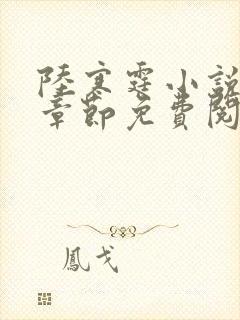 陸寒霆小說
章節免費閱
鳳戈